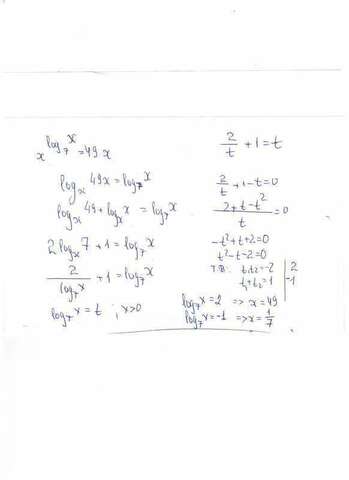 x^{log_7 x} = 49x
log_x 49x = log_7 x
log_x 49 + log_x x = log_7 x
2 log_x 7 + 1 = log_7 x
2/(log_7 x) + 1 = log_7 x
log_7 x = t ; x>0
2/t + 1 = t
2/t + 1 - t = 0
(2 + t - t^2)/t = 0
-t^2 + t + 2 = 0
t^2 - t - 2 = 0
Т.В: t_1 t_2 = -2 | 2
t_1 + t_2 = 1 | -1
log_7 x = 2 => x = 49
log_7 x = -1 => x = 1/7